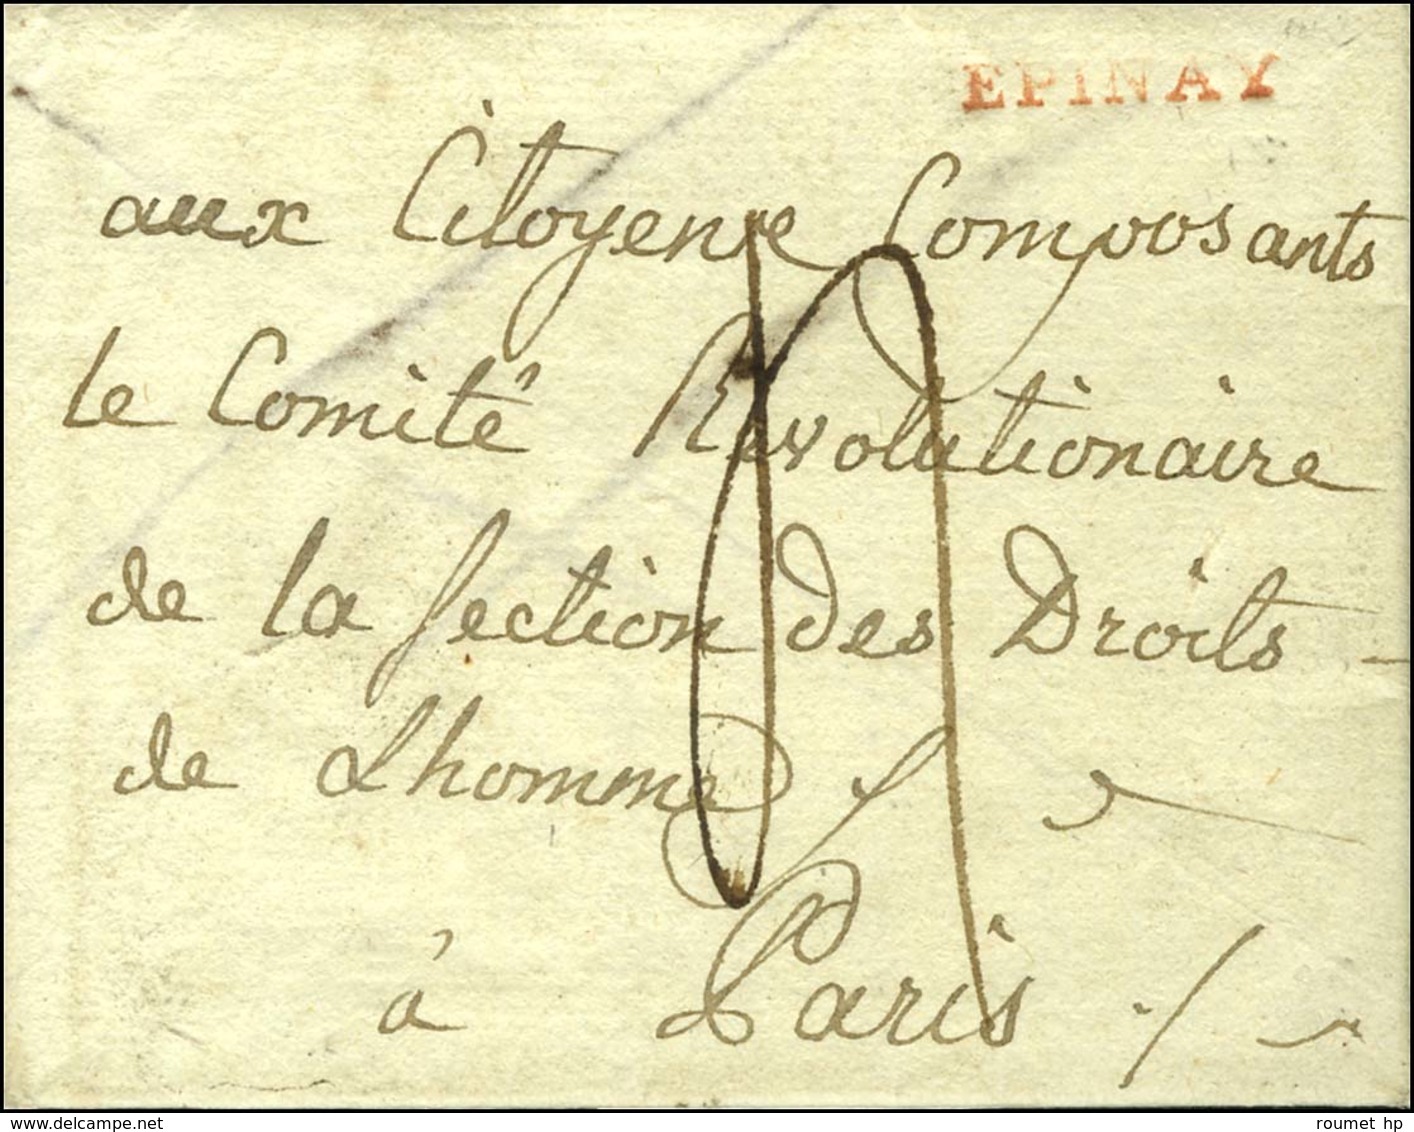 EPINAY
aux Citoyens Composants
le Comité Révolutionaire
de la Section des Droits
de Lhomme
à Paris
roumet hp